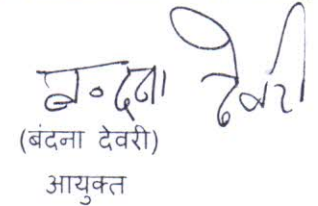 बन्दना देवरी
(बंदना देवरी)
आयुक्त